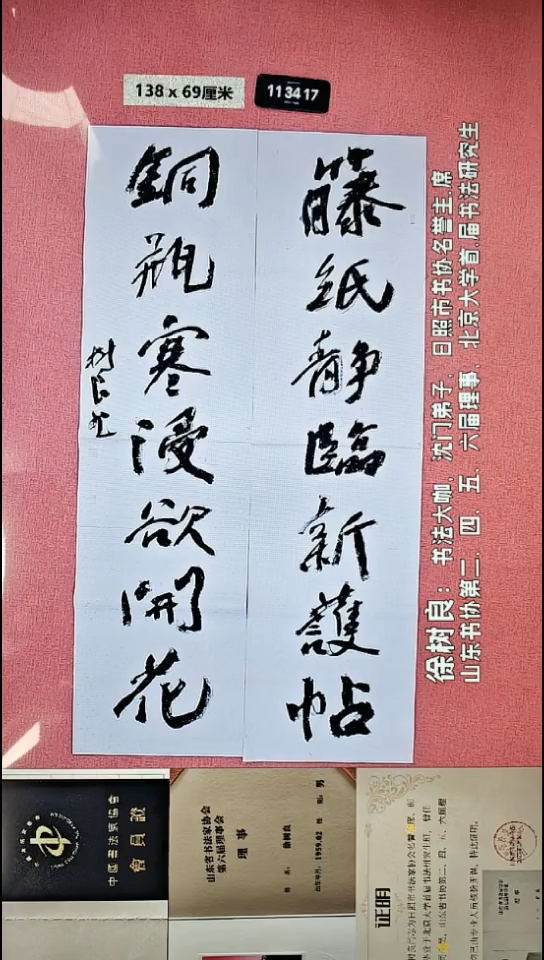 138 x 69厘米
113417
籐紙靜臨新護帖
銅瓶寒浸欲開花
树良书
徐树良：书法大咖、沈门弟子、日照市书协名誉主席
山东书协第二、四、五、六届理事、北京大学首届书法研究生
中國書法家協會
會員證
山东省书法家协会
第六届理事会
理事
徐树良
1959.02
男
证明